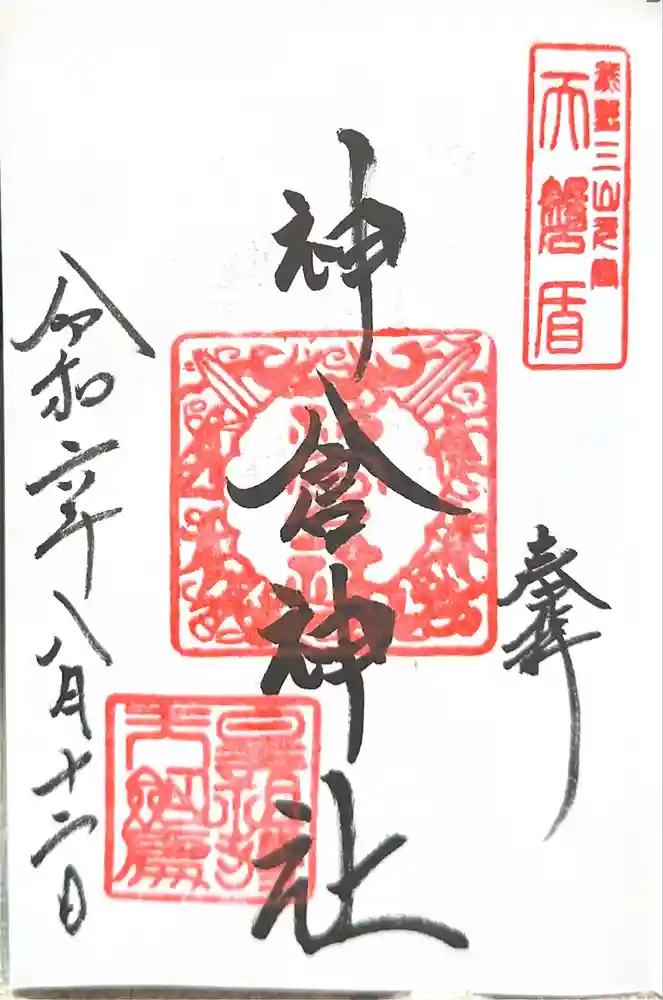 熊野三山元宮
天磐盾
奉拝
神倉神社
令和六年八月十二日